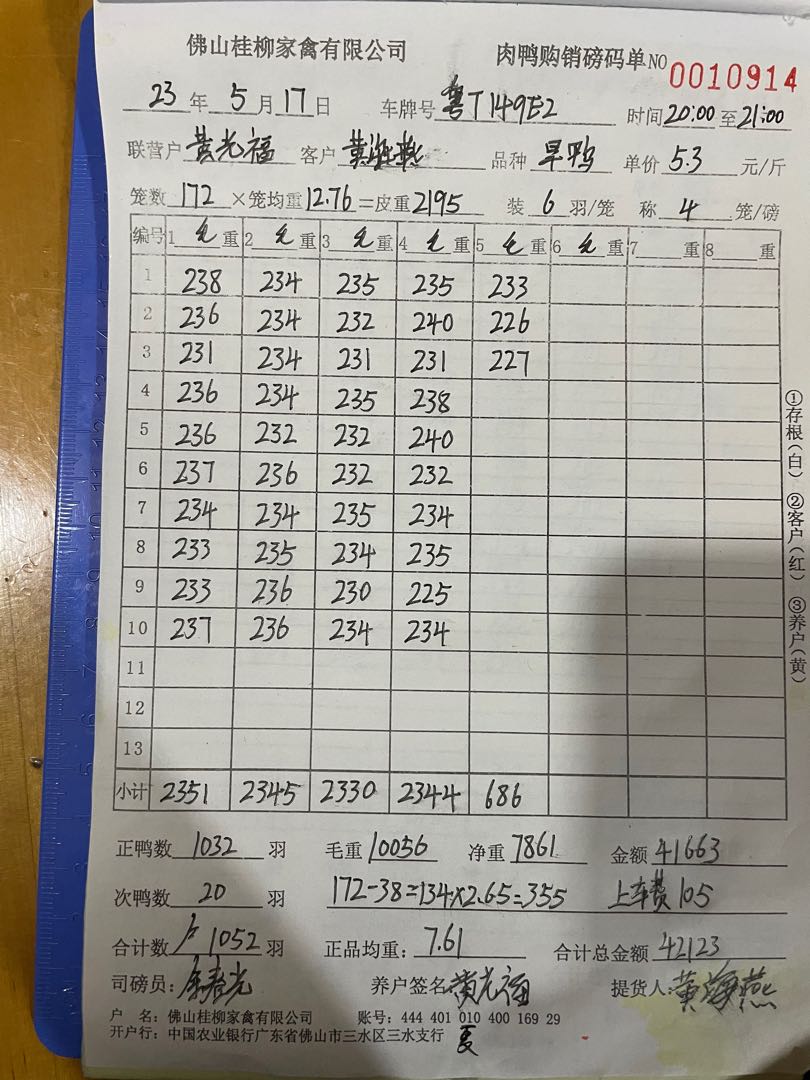 佛山桂柳家禽有限公司 肉鸭购销磅码单 NO 0010914
23 年 5 月 17 日 车牌号 粤T149E2 时间 20:00 至 21:00
联营户 黄光福 客户 黄海燕 品种 旱鸭 单价 5.3 元/斤
笼数 172 ×笼均重 12.76 =皮重 2195 装 6 羽/笼 称 4 笼/磅
编号 1 毛 重 2 毛 重 3 毛 重 4 毛 重 5 毛 重 6 毛 重 7 重 8 重
1 238 234 235 235 233
2 236 234 232 240 226
3 231 234 231 231 227
4 236 234 235 238
5 236 232 232 240
6 237 236 232 232
7 234 234 235 234
8 233 235 234 235
9 233 236 230 225
10 237 236 234 234
11
12
13
小计 2351 2345 2330 2344 686
正鸭数 1032 羽 毛重 10056 净重 7861 金额 41663
次鸭数 20 羽 172-38=134×2.65=355 上车费 105
合计数 1052 羽 正品均重: 7.61 合计总金额 42123
司磅员: 养户签名 黄光福 提货人: 黄海燕
户 名: 佛山桂柳家禽有限公司 账号: 444 401 010 400 169 29
开户行: 中国农业银行广东省佛山市三水区三水支行 夏
①存根(白) ②客户(红) ③养户(黄)